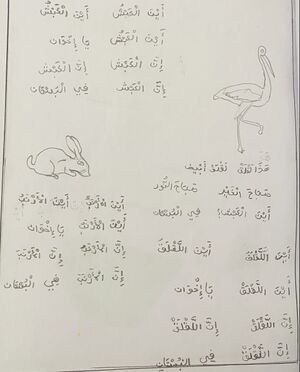 أَيْنَ الْكَبْشُ أَيْنَ الْكَبْشُ
أَيْنَ الْكَبْشُ يَا إِخْوَان
إِنَّ الْكَبْشَ إِنَّ الْكَبْشَ
إِنَّ الْكَبْشَ فِي الْبُسْتَان
هَذَا لَقْلَقٌ لَقْلَقٌ أَبْيَضُ
صَبَاحَ الْخَيْرِ صَبَاحَ النُّورِ
أَيْنَ فِي الْبُسْتَان
أَيْنَ الْأَرْنَبُ أَيْنَ الْأَرْنَبُ
أَيْنَ الْأَرْنَبُ يَا إِخْوَان
إِنَّ الْأَرْنَبَ إِنَّ الْأَرْنَبَ
إِنَّ الْأَرْنَبَ فِي الْبُسْتَان
أَيْنَ اللَّقْلَقُ أَيْنَ اللَّقْلَقُ
أَيْنَ اللَّقْلَقُ يَا إِخْوَان
إِنَّ اللَّقْلَقَ إِنَّ اللَّقْلَقَ
إِنَّ اللَّقْلَقَ فِي الْبُسْتَان